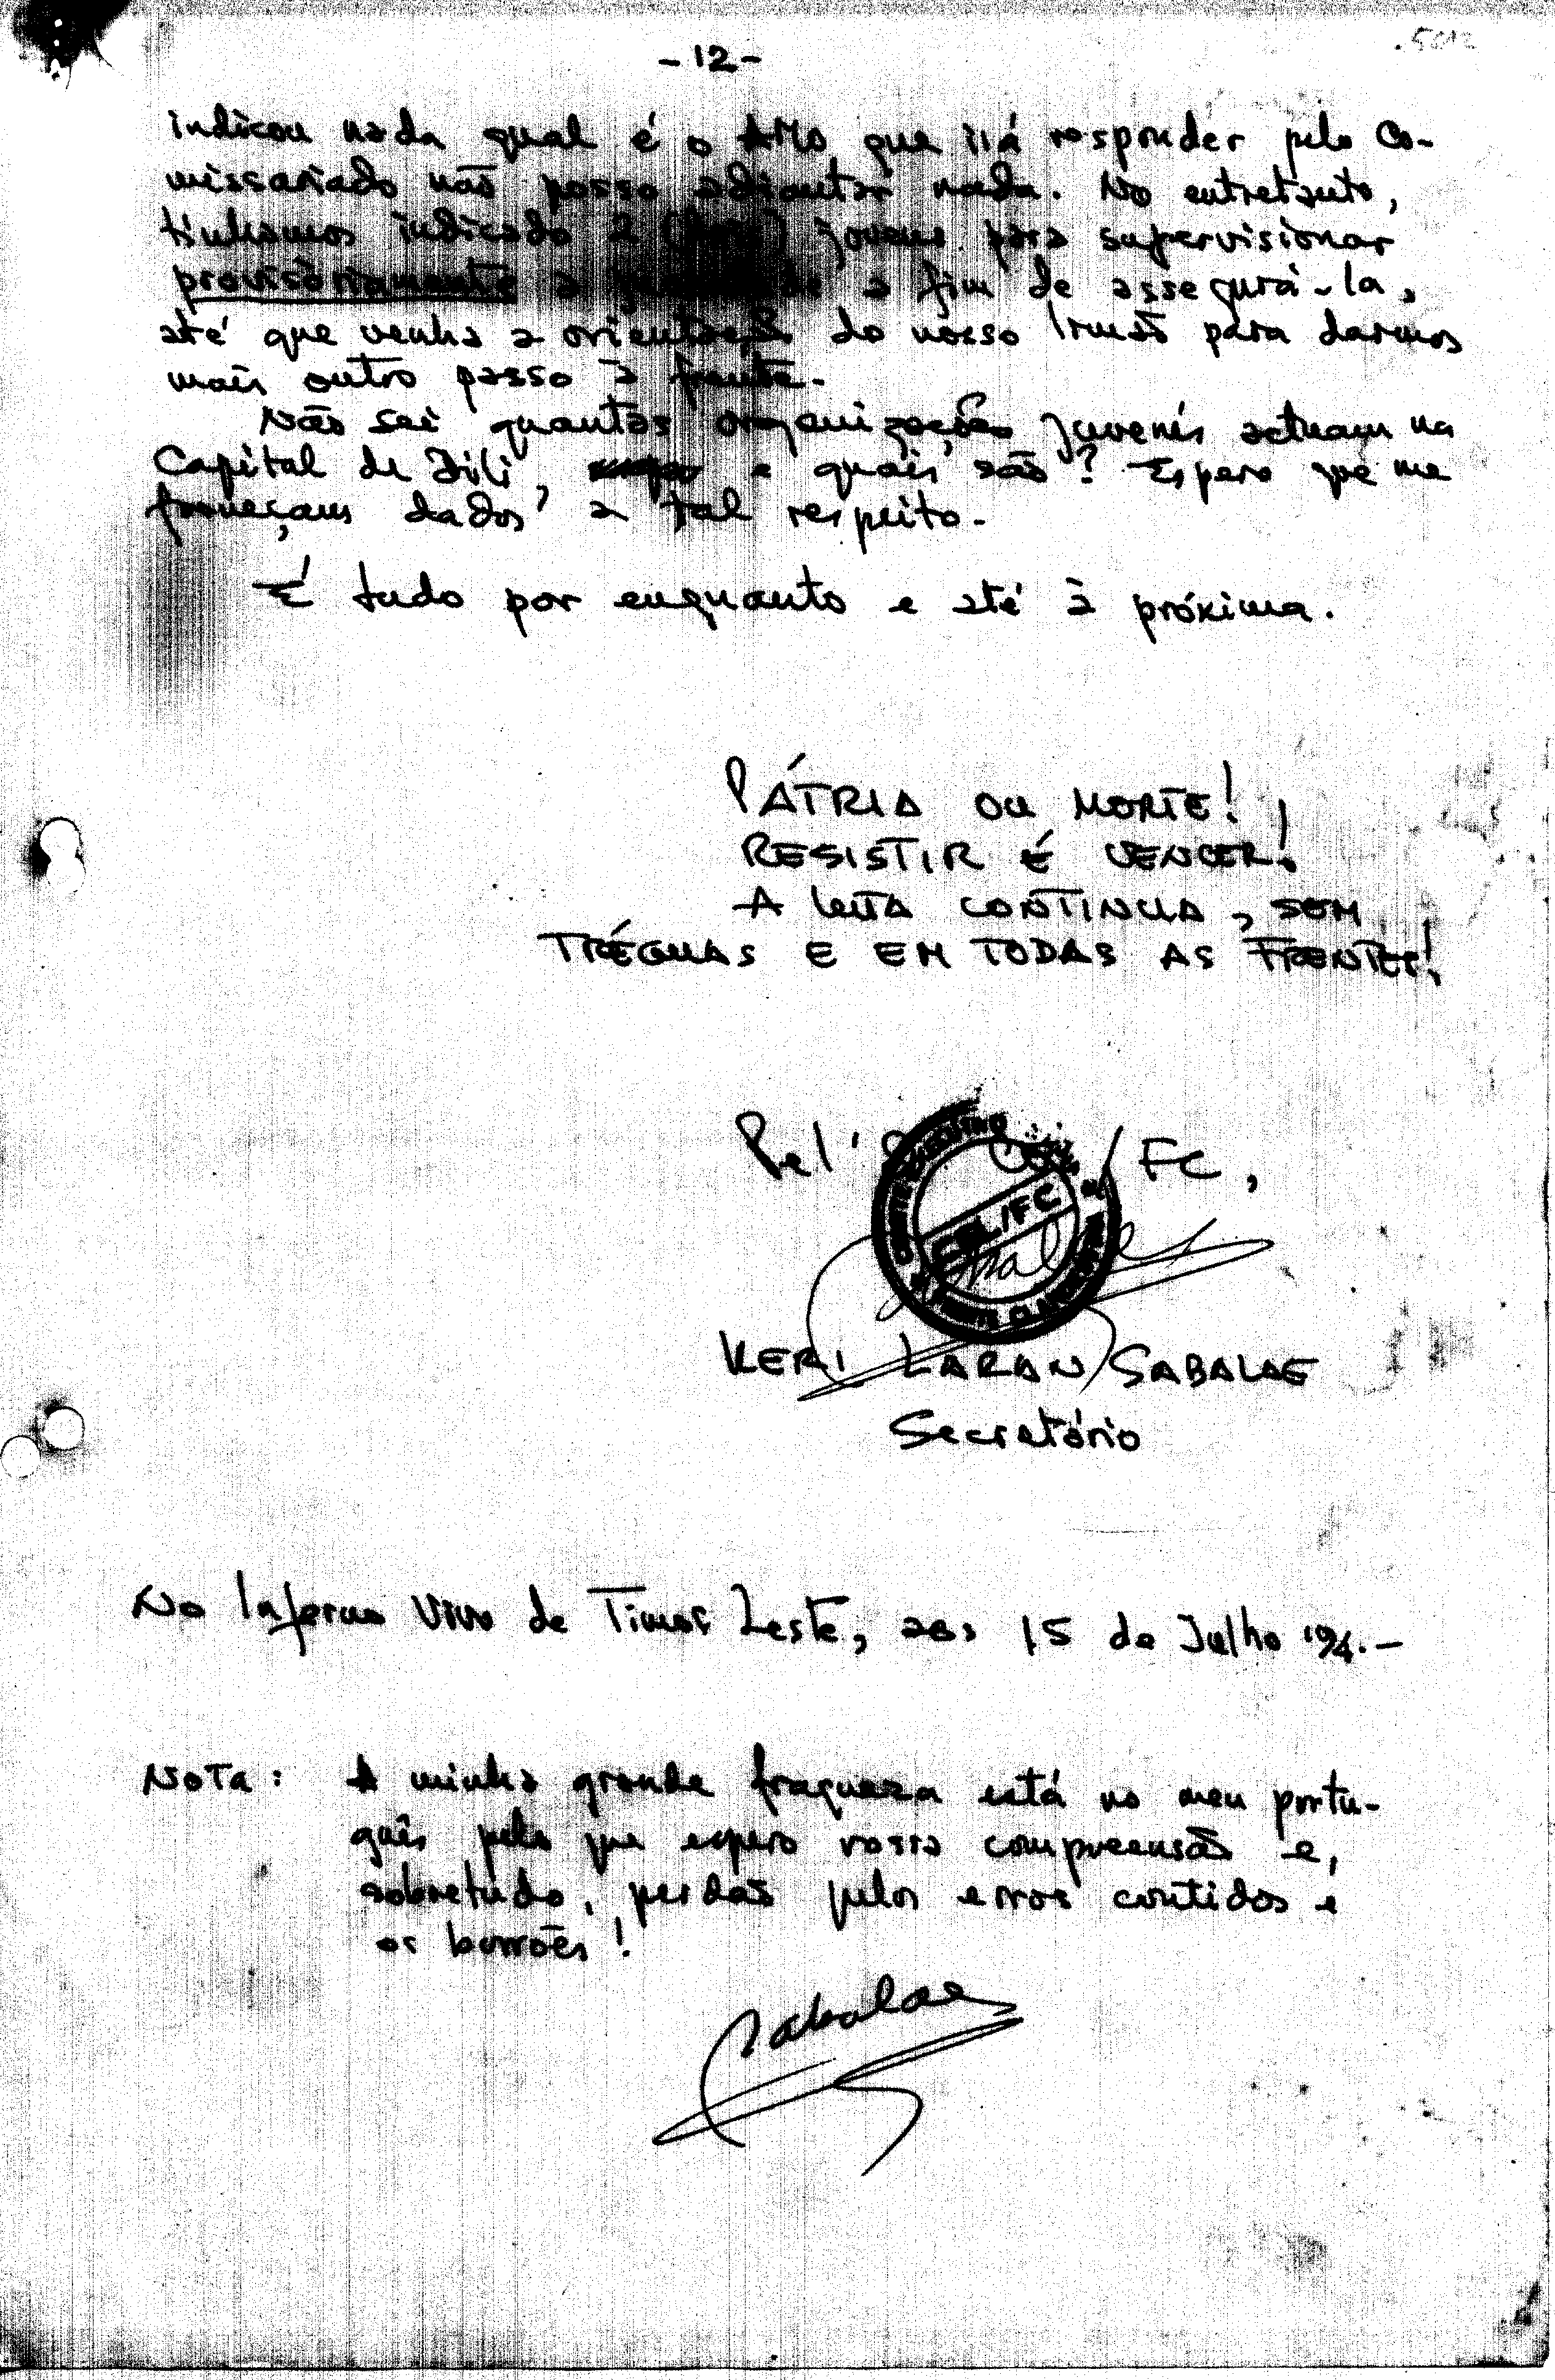 - 12 -
indicou nada qual é o AMo que irá responder pelo Co-
missariado não posso adiantar nada. No entretanto,
tínhamos indicado 2 (dois) jovens para supervisionar
provisòriamente a a fim de assegurá-la,
até que venha a orientação do nosso Irmão para darmos
mais outro passo à frente.
Não sei quantas organizações juvenís actuam na
Capital de Díli, e quais são? Espero que me
forneçam dados a tal respeito.
É tudo por enquanto e até à próxima.
PÁTRIA OU MORTE!
RESISTIR É VENCER!
A LUTA CONTINUA, SEM
TRÉGUAS E EM TODAS AS FRENTES!
Pel' /FC,
CEL/FC
KERI LARAN SABALAE
Secretário
No Inferno Vivo de Timor Leste, aos 15 de Julho '94.-
NOTA: A minha grande fraqueza está no meu portu-
guês pelo que espero vossa compreensão e,
sobretudo, perdão pelos erros contidos e
os borrões!
Sabalae